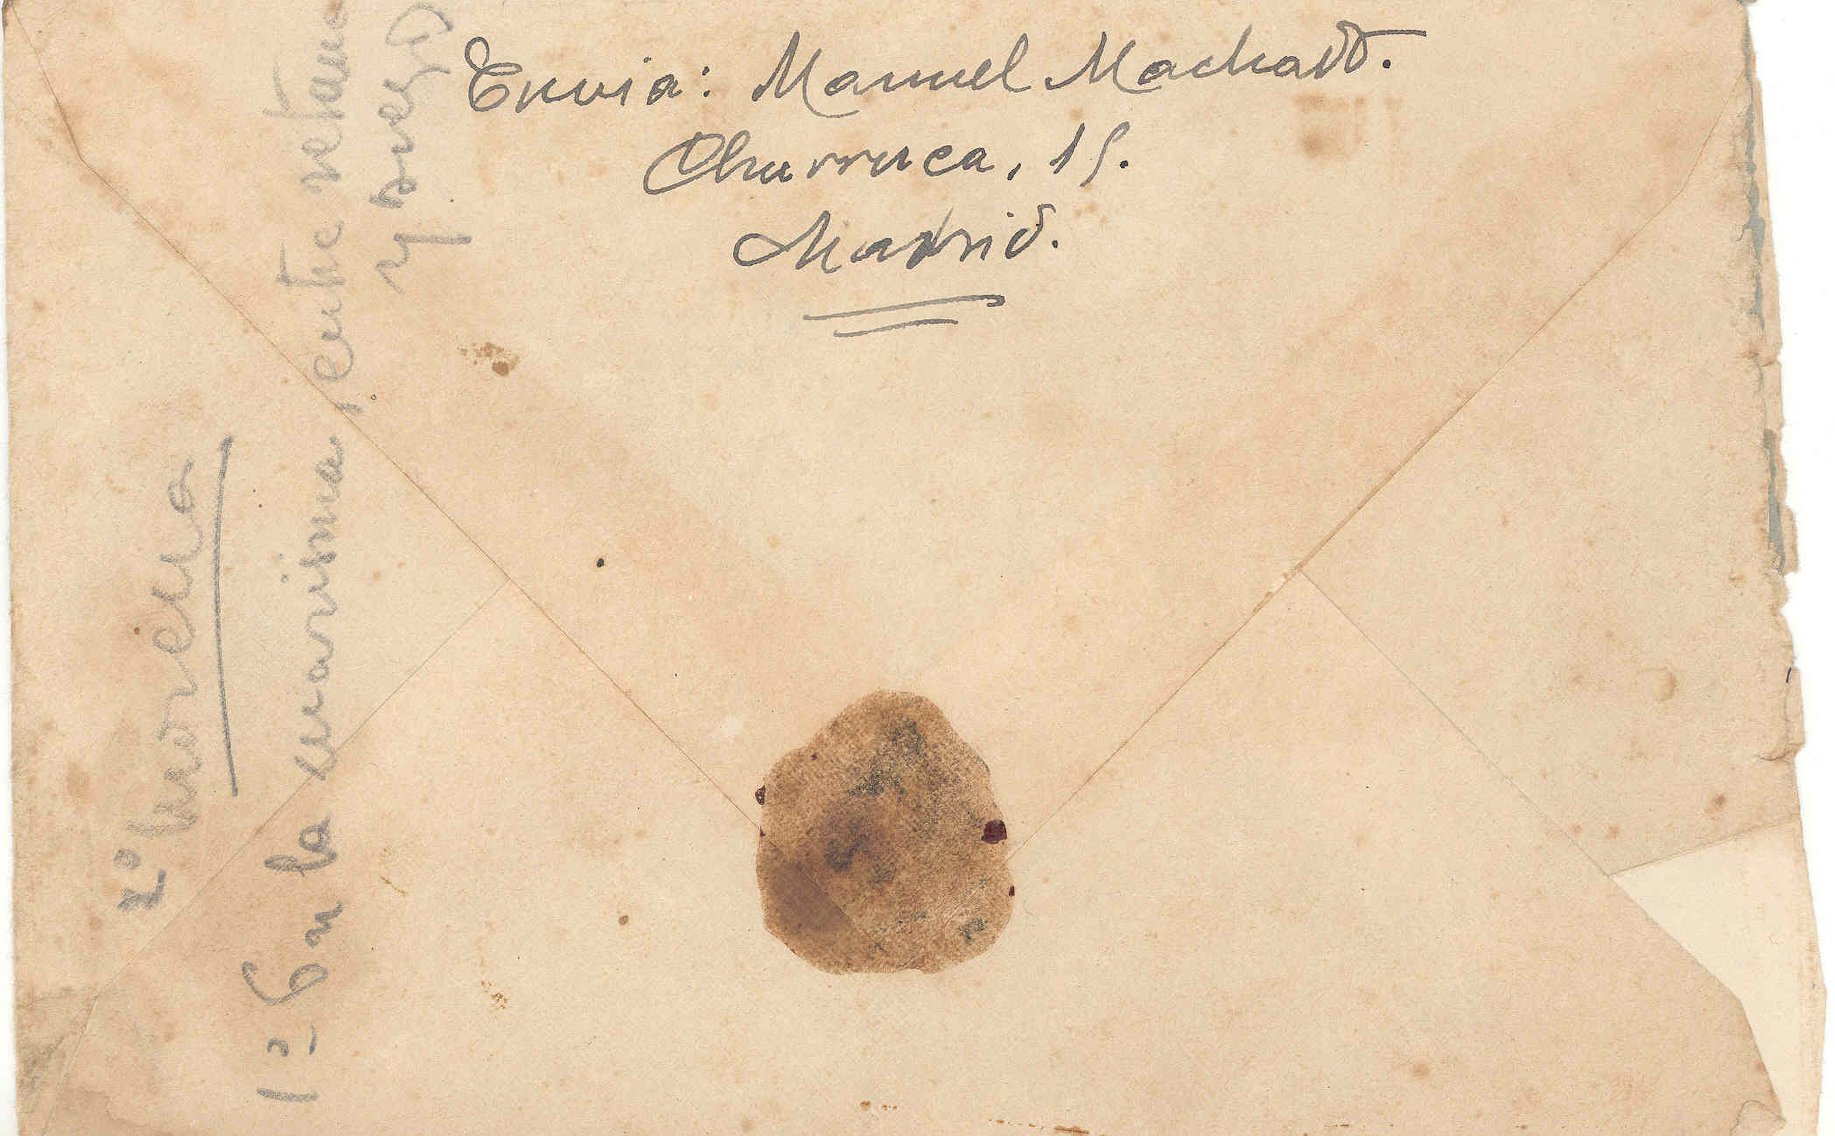 Envia: Manuel Machado.
Churruca, 15.
Madrid.
1º En la marisma, entre retama
y
2º